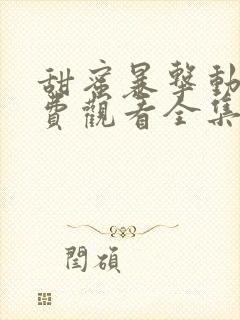 甜蜜暴擊動
費觀看全集
閆碩